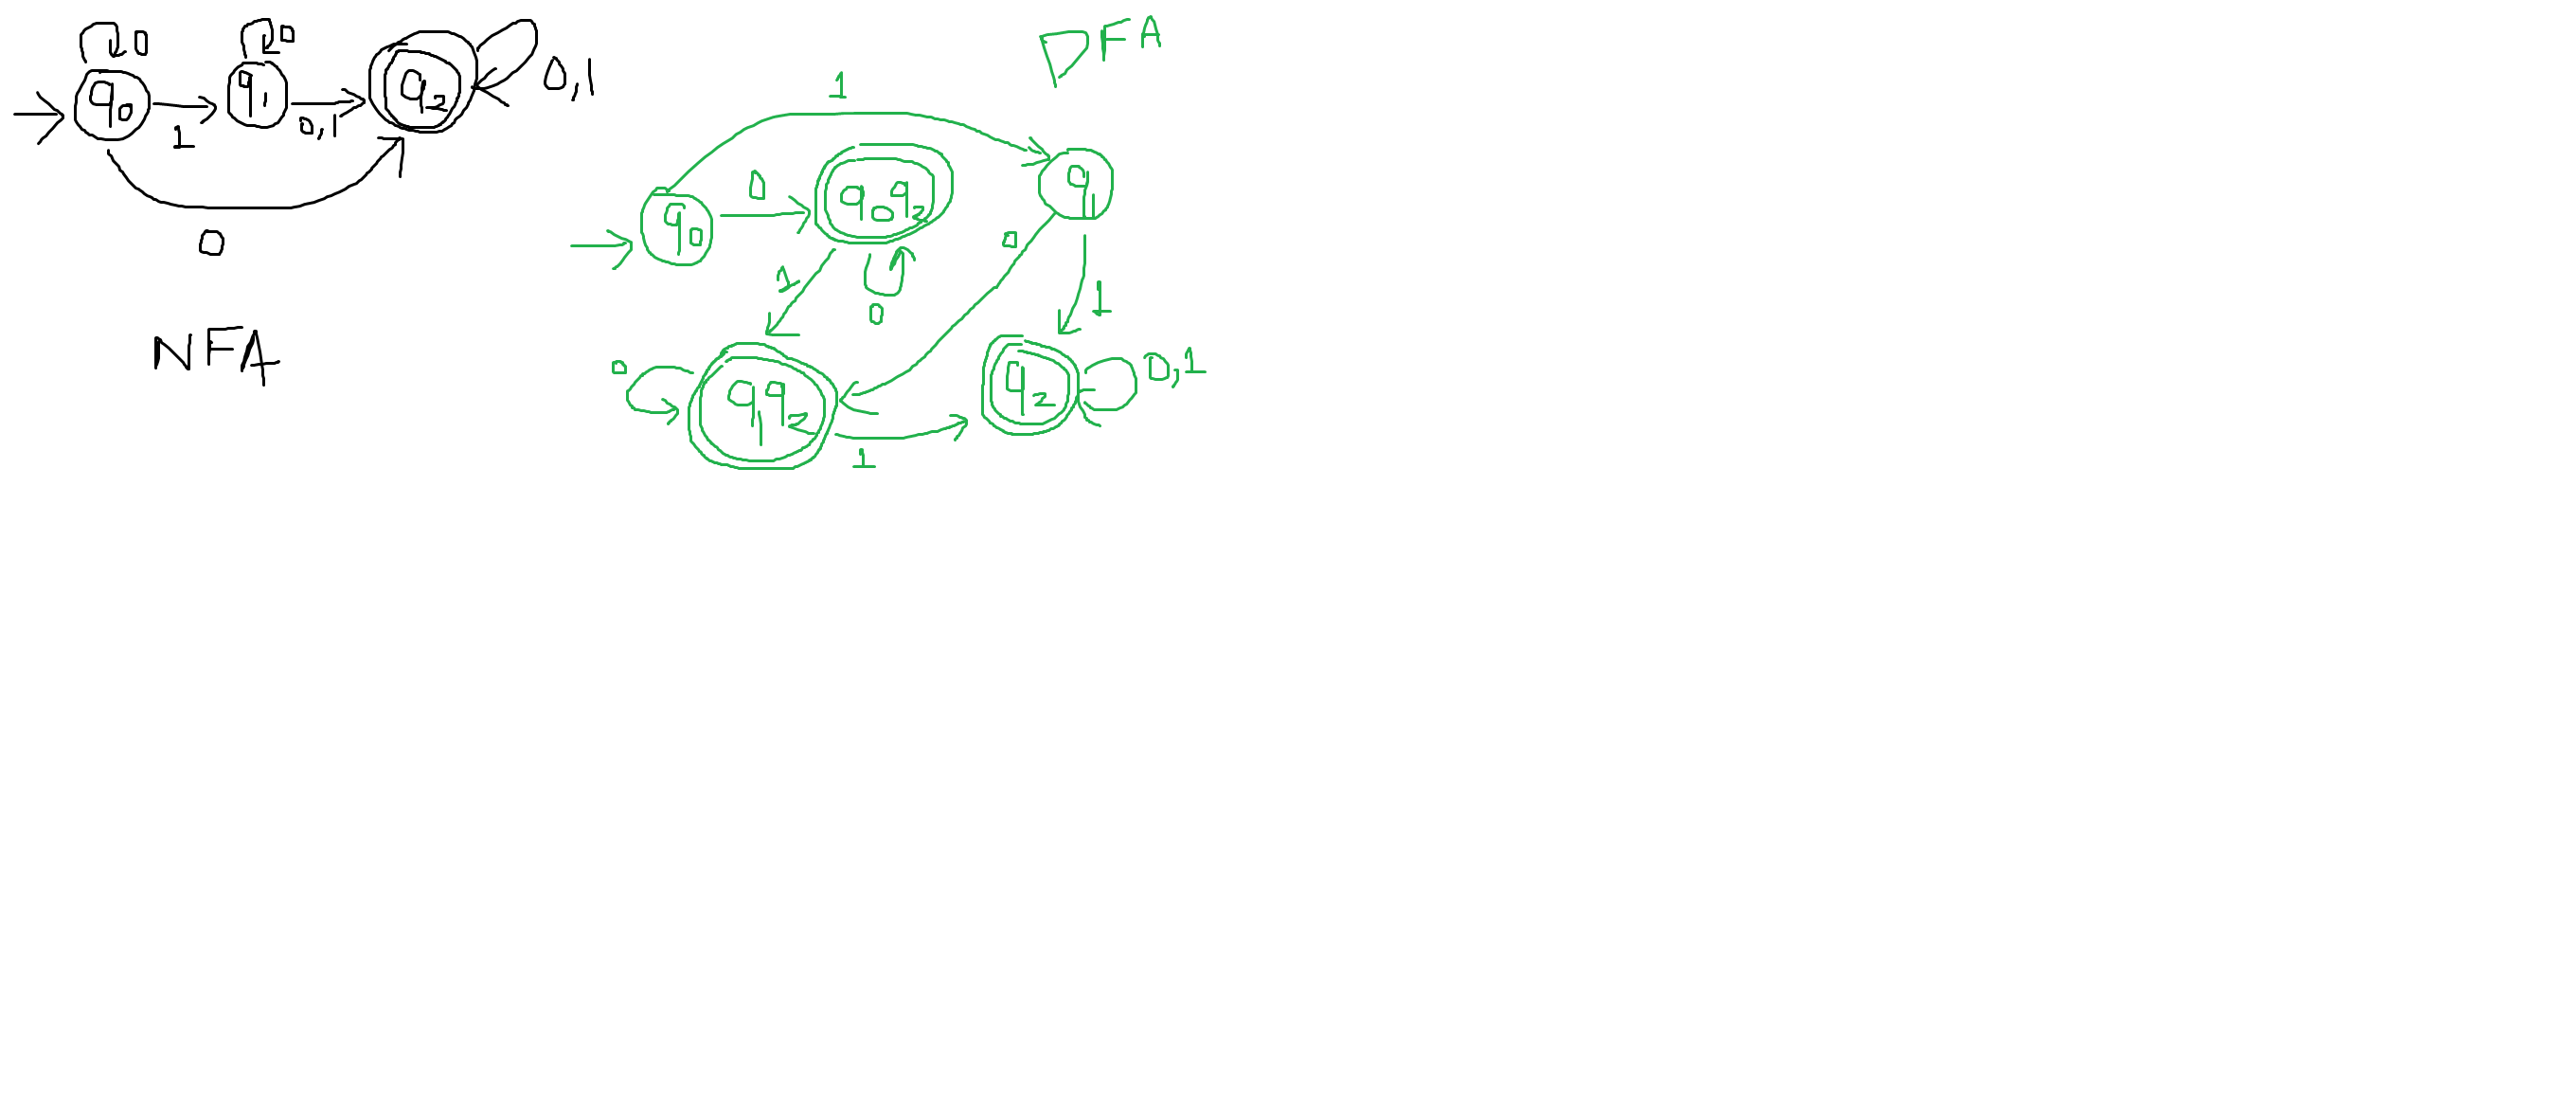 0 0
q0 q1 q2 0,1
1 0,1
0
NFA
DFA
1
q0 0 q0q2 q1
1 0 0 1
0 q1q2 1 q2 0,1